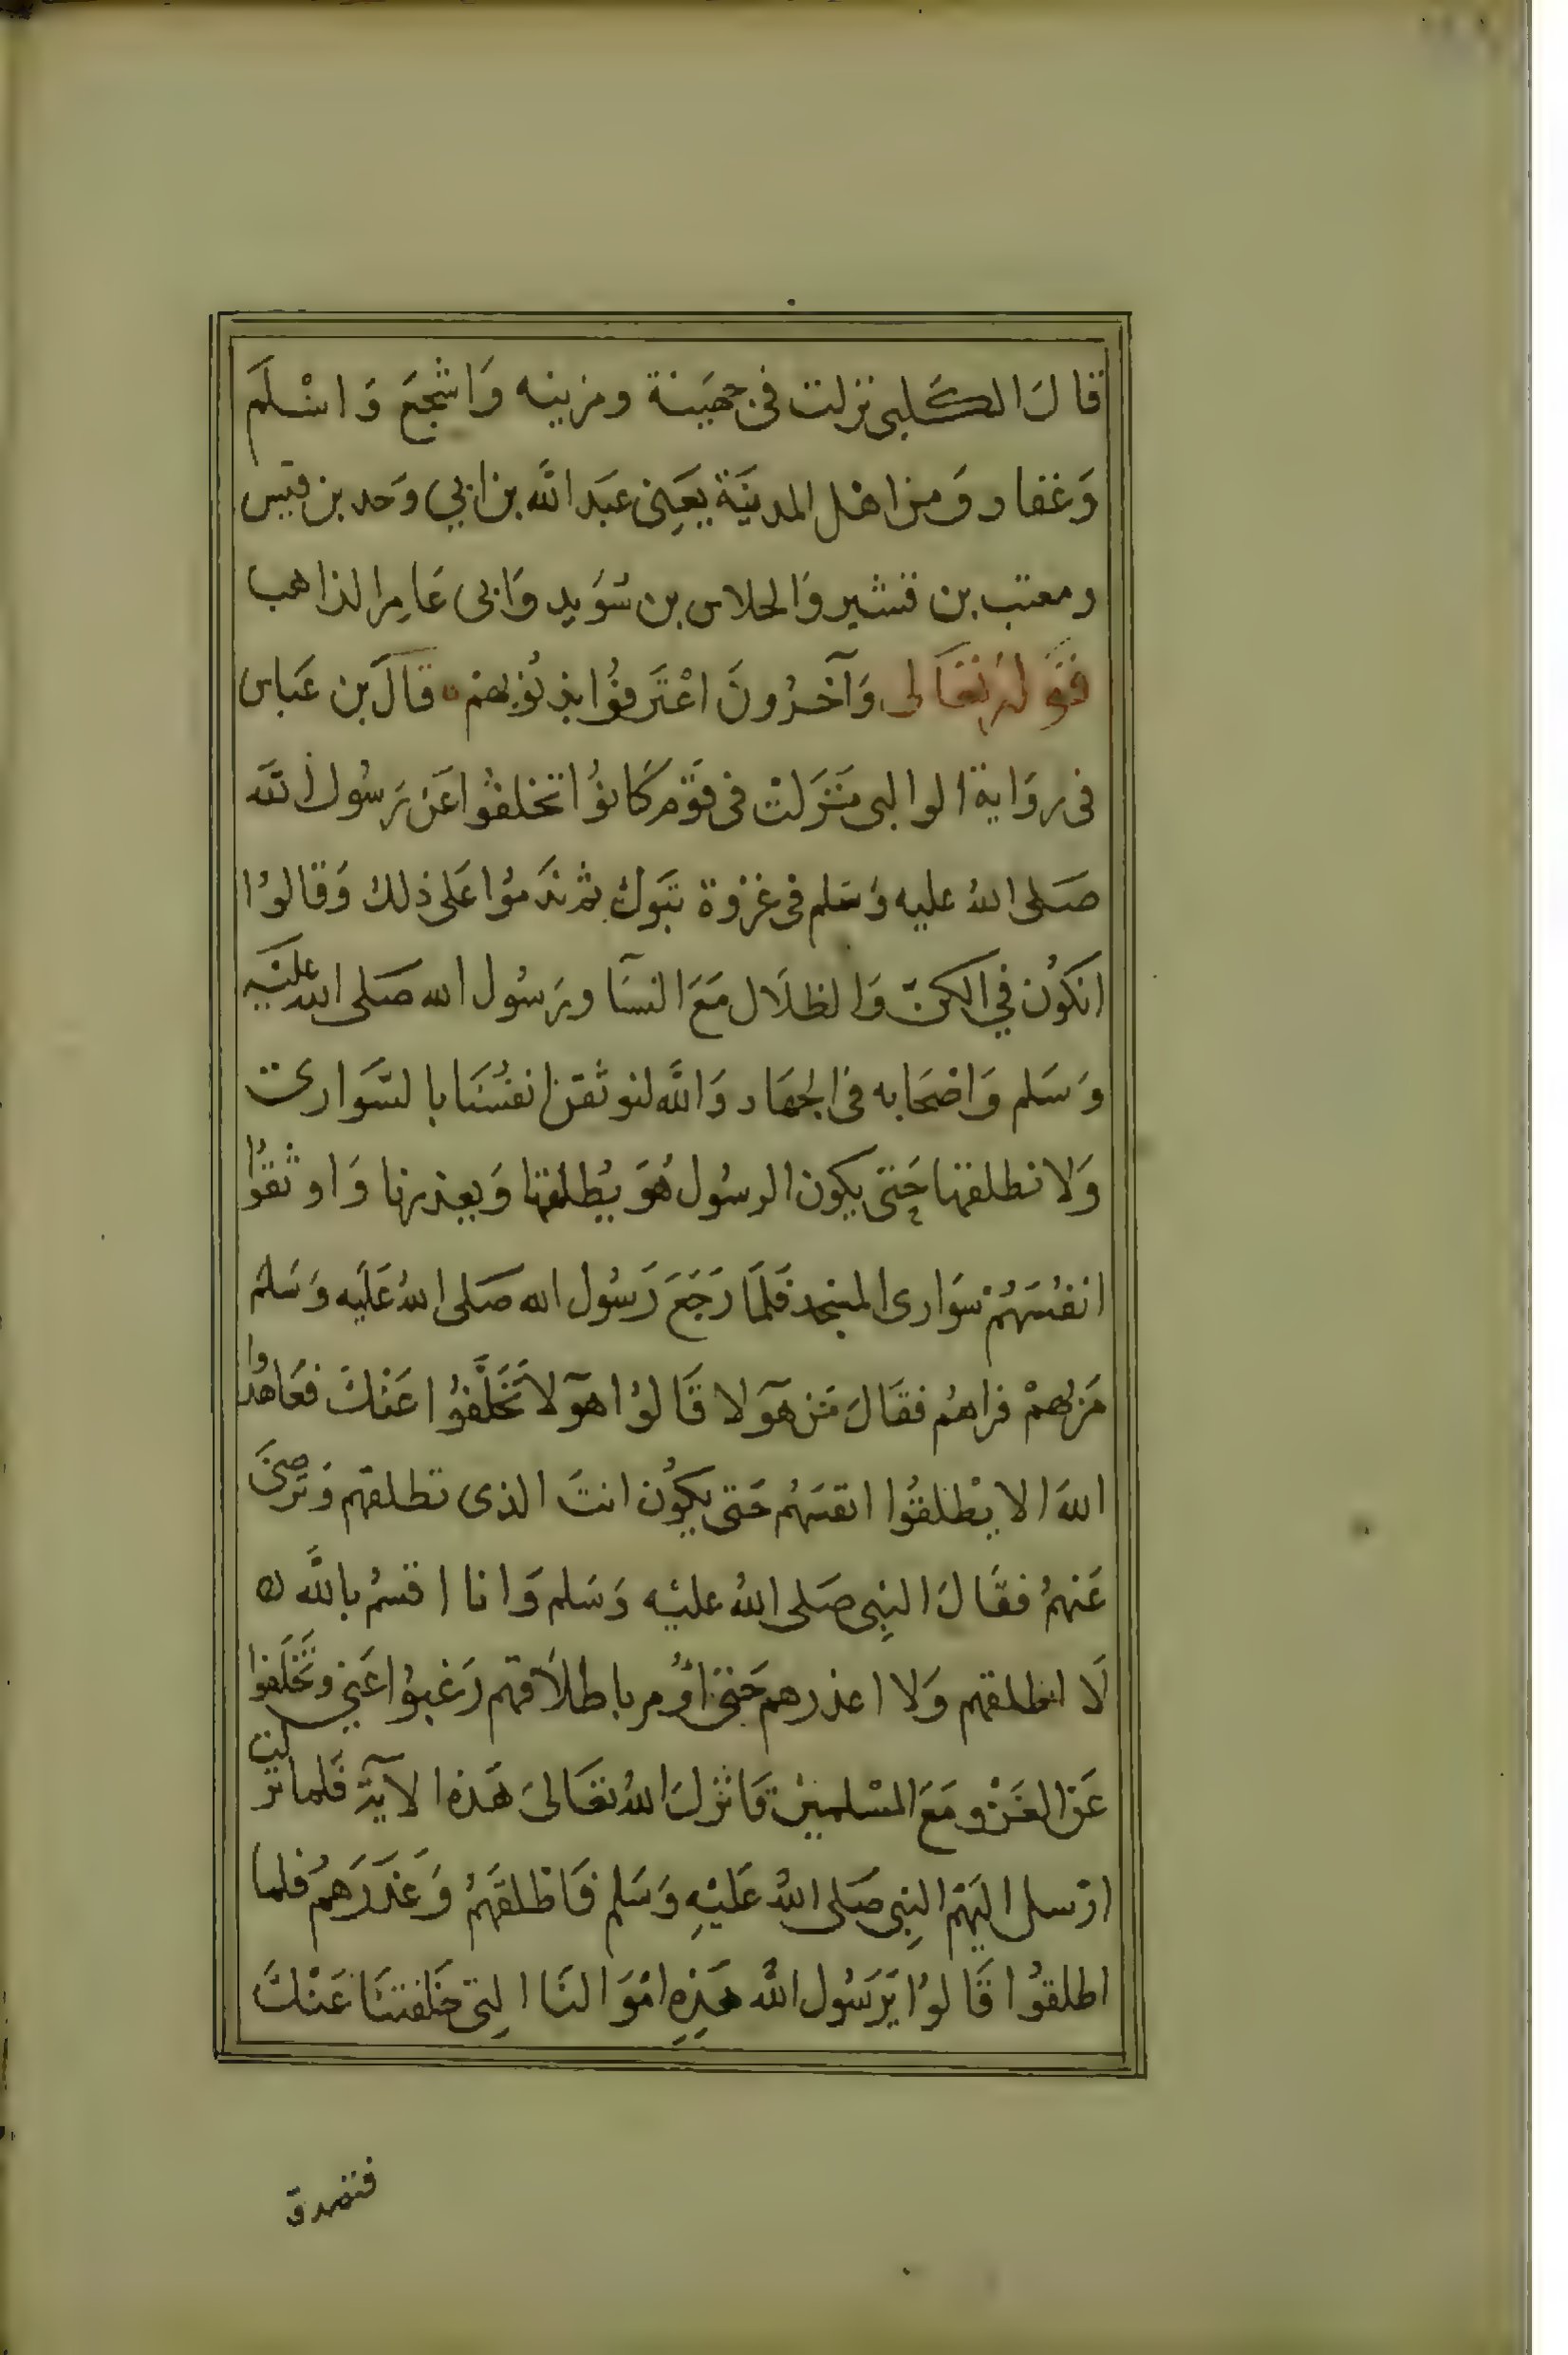 قَالَ الكَلبى نزلت فى جهَينة ومزينه وَاشجَعَ وَاسْلَم
وَغفار وَمن اهْل المدينَة يَعِنى عبَد اللَّه بن ابي وَجد بن قيس
ومعتب بن قشير وَالجلاس بن سُوَيد وَابى عَامِر الذاهب
قَولهُ تعَالى وَآخَرُونَ اعْتَرَفُوا بذنُوبهمْ قَالَ بن عَباس
فى روَاية الوالبى نَزَلتْ فى قوَم كَانوُا تخلفُوا عَن رَسُول اللَّه
صَلى اللهُ عليه وَسَلم فى غزوة تبَوك ثم ندَموُا عَلى ذلك وَقالوُا
انكوُن في الكن وَالظلاَل مَعَ النسَآ ورَسُول الله صَلى الله عليْه
وَسَلم وَاصْحَابه فى الجهَاد وَاللَّه لنوثقن انفسُنَا بالسَّوارى
وَلا نطلقها حَتى يكون الرسُول هُوَ يُطلقها وَيعذرنا وَاوثقوُا
انفسَهُمْ بسَوارى المسْجد فَلمَا رَجَعَ رَسُول الله صَلى اللهُ عَلَيه وَسَلم
مَر بهمْ فراهُم فقَالَ مَن هَؤلآ قَالوُا هؤلآ تَخَلَّفوُا عَنْكَ فعَاهدُوا
اللهَ الا يطْلقوُا انفسَهُم حَتى يكوُن انتَ الذى تطلقهم وَترضَى
عَنهمُ فقَالَ النبِى صَلى اللهُ عليْه وَسَلم وَانا اقسمُ باللَّه
لَا اطلقهم وَلا اعذرهم حَتى اوُمر باطلاَقهم رَغبوُا عَنى وتَخَلَفوا
عَن الغَزْو مَعَ المسْلمين فَانزلَ اللهُ تعَالىَ هَذه الاية فَلما نزلت
ارْسل اليَهْم النبِى صَلى اللهُ عَليْهِ وَسَلم فَاطْلقَهُمْ وَعَذَرَهمُ فلما
اطلقوُا قَالوُا يَرَسُول اللَّه هَذِهِ امْوَالنَا التِى خَلفتنَا عَنْكَ
فتصدق